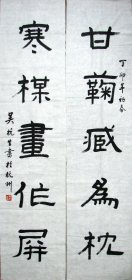 丁卯年初春
甘鞠臧為枕
寒楳畫作屏
吴生書於杭州